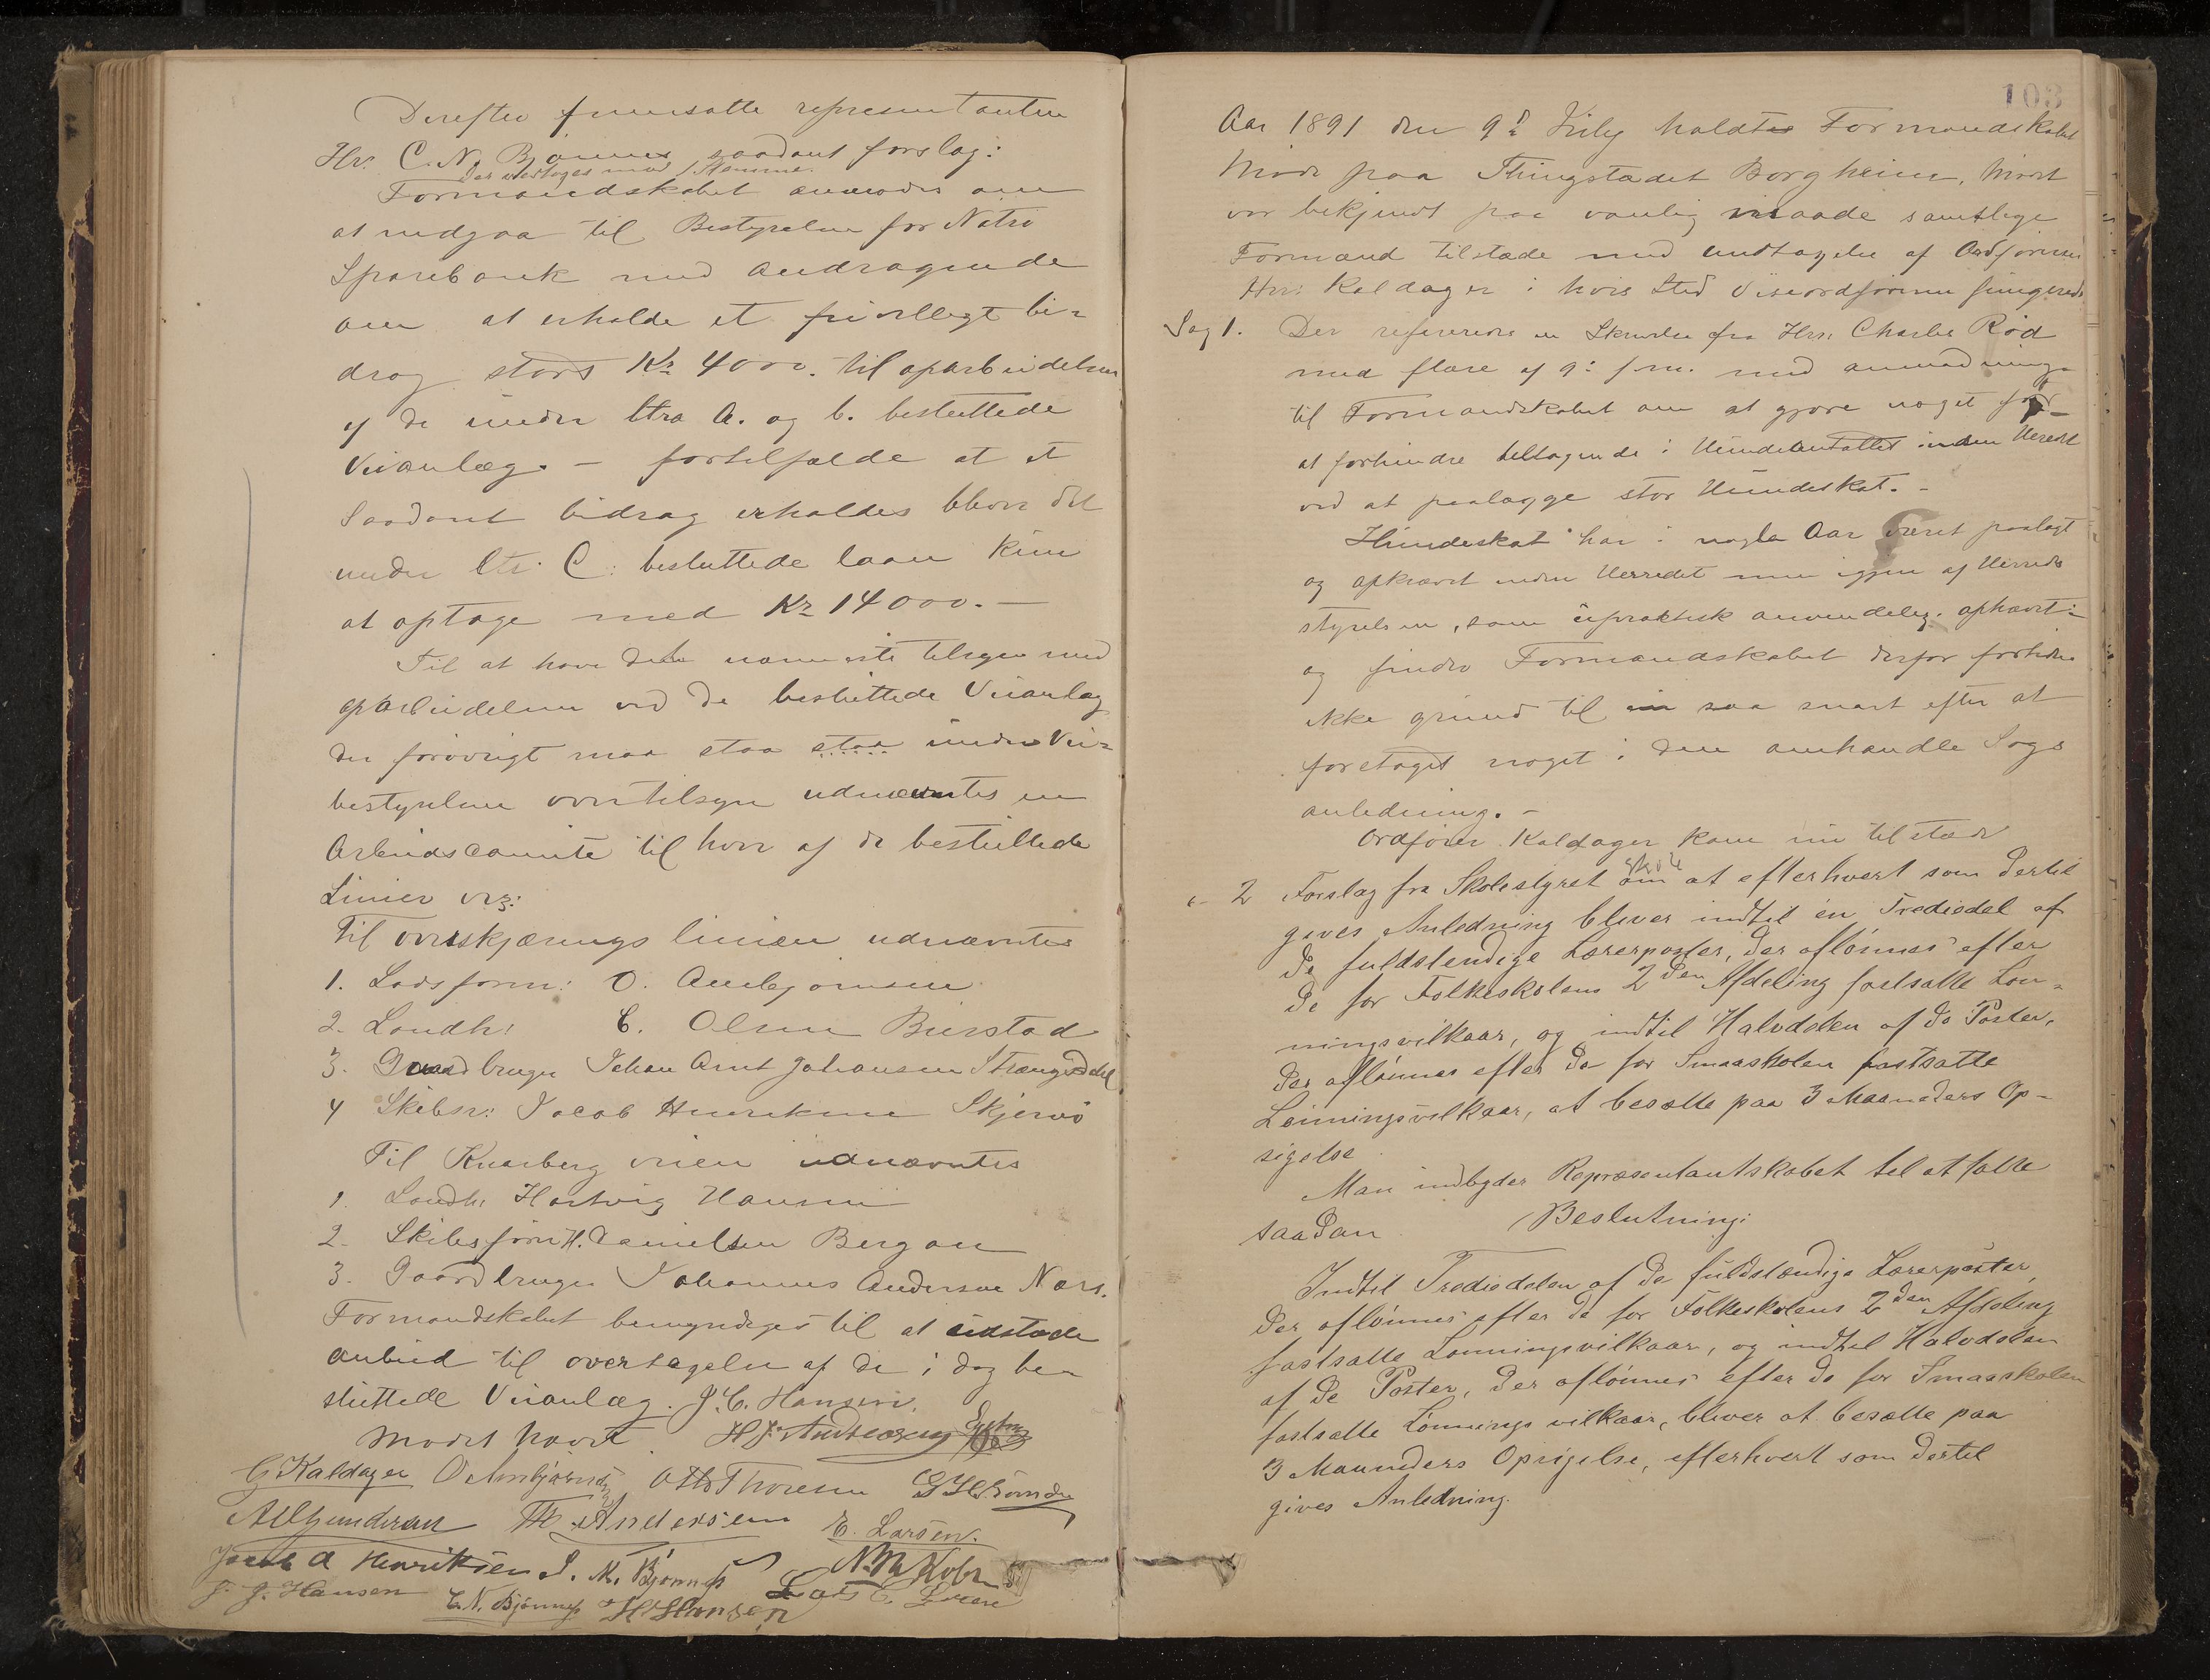 Derefter fremsatte representanten
Hr. C. N. Bjønnes saadant forslag:
Der vedtoges mod 1 Stemme.
Formandskabet anmodes om
at indgaa til Bestyrelsen for Nøtrø
Sparebank med andragende
om at erholde et frivilligt bi-
drag stort Kr 4000. til oparbeidelsen
af de under Ltra A. og b. besluttede
Veianlæg. – fortilfælde at et
Saadant bidrag erholdes bliver det
under Ltr. C. besluttede laan kun
at optage med Kr 14000. –
Til at have det nærmeste tilsyn med
oparbeidelsen ved de besluttede Veianlæg
der forøvrigt maa staa staa under Vei-
bestyrelsens overtilsyn udnævntes en
Arbeidscomite til hver af de besluttede
Linier viz:
Til overskjærings linien udnævntes
1. Lodsform: O. Ambjørnsen
2. Landh: C. Olsen Buerstad
3. Gaardbruger Johan Arnt Johansen Strengsdal
4 Skibsr: Jacob Henriksen Skjervø
Til Knarberg veien udnævntes
1. Landh: Hartvig Hansen
2. Skibsfører H. Danielsen Bergan
3. Gaardbruger Johannes Andersen Næs.
Formandskabet bemyndiges til at udstæde
anbud til overtagelse af de i dag be-
sluttede Veianlæg. J. C. Hansen.
Mødet hævet. H. J. Andersen
G Kaldager O Ambjørnsen Otto Thoresen
A Gundersen Th. Andersen E. Larsen.
Jacob A Henriksen S. M. Bjønnes N. M.
J. J. Hansen C. N. Bjønnes H Hansen Lars E
103
Aar 1891 den 9d July holdtes Formandskabs
Møde paa Thingstedet Borgheim, Mødet
var bekjendt paa vanlig viisaade samtlige
Formænd tilstede med undtagelse af Ordføreren
Hrr: Kaldager i hvis Sted Viseordføreren fungerede
Sag 1. Der refereredes en Skrivelse fra Hrr. Charles Rød
med flere af 9: f. m. med anmodning
til Formandskabet om at gjøre noget for
at forhindre tiltagende i Hundeantallet inden Heredet
ved at paalægge stor Hundeskat. –
Hundeskat har i nogle Aar været paalagt
og opkrævet inden Herredet men igjen af Herreds
styrelsen, som upraktisk anvendelig. ophævet:
og finder Formandskabet derfor fortiden
ikke grund til saa snart efter at
foretaget noget i den omhandlede Sags
anledning. –
Ordfører Kaldager kom nu tilstede
2 Forslag fra Skolestyret om at efterhvert som dertil
gives Anledning bliver indtil én Trediedel af
de fuldstendige Lærerposter, der aflønnes efter
de for Folkeskolens 2den Afdeling fastsatte Løn-
ningsvilkaar, og indtil Halvdelen af de Poster,
der aflønnes efter de for Smaaskolen fastsatte
Lønningsvilkaar, at besætte paa 3 Maaneders Op-
sigelse
Man indbyder Repræsentantskabet til at fatte
saadan Beslutning:
Indtil Trediedelen af de fuldstændige Lærerposter,
der aflønnes efter de for Folkeskolens 2den Afdeling
fastsatte Lønningsvilkaar, og indtil Halvdelen
af de Poster, der aflønnes efter de for Smaaskolen
fastsatte Lønnings vilkaar, bliver at besætte paa
3 Maaneders Opsigelse, efterhvert som dertil
gives Anledning.